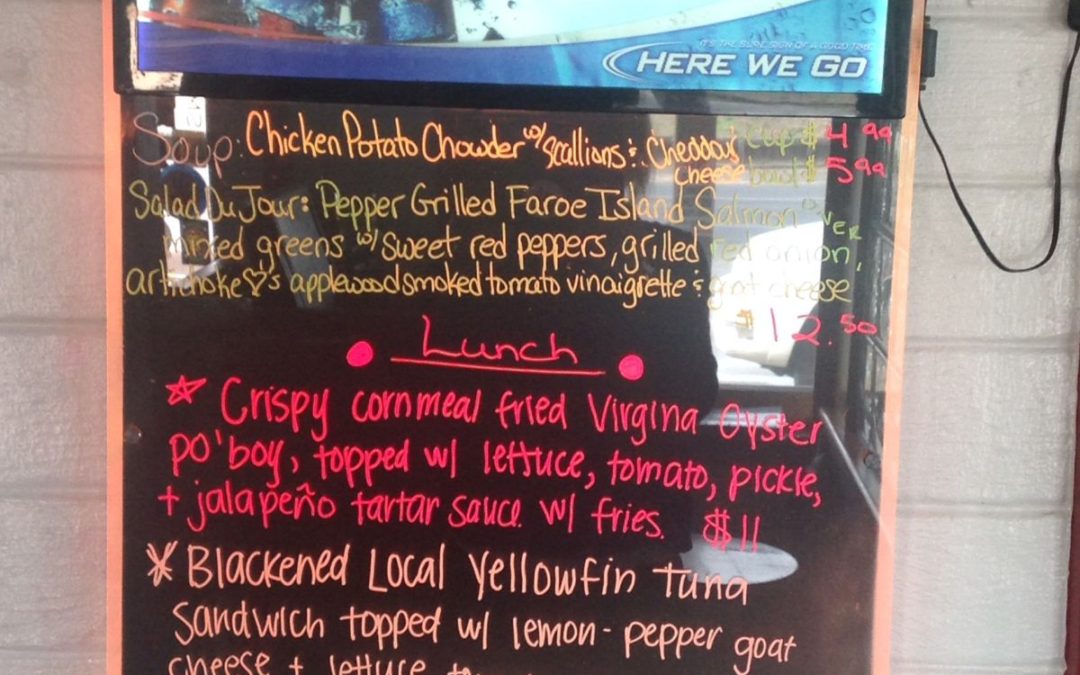 IT'S THE SURE SIGN OF A GOOD TIME
HERE WE GO
Soup: Chicken Potato Chowder w/ scallions & Cheddar cup $4.99
cheese bowl $5.99
Salad Du Jour: Pepper Grilled Faroe Island Salmon OVER
mixed greens w/ sweet red peppers, grilled red onion,
artichoke ♡'s applewood smoked tomato vinaigrette & goat cheese
$12.50
Lunch
☆ Crispy cornmeal fried Virgina Oyster
po'boy, topped w/ lettuce, tomato, pickle,
+ jalapeño tartar sauce w/ fries. $11
* Blackened Local Yellowfin Tuna
Sandwich topped w/ lemon-pepper goat
cheese + lettuce